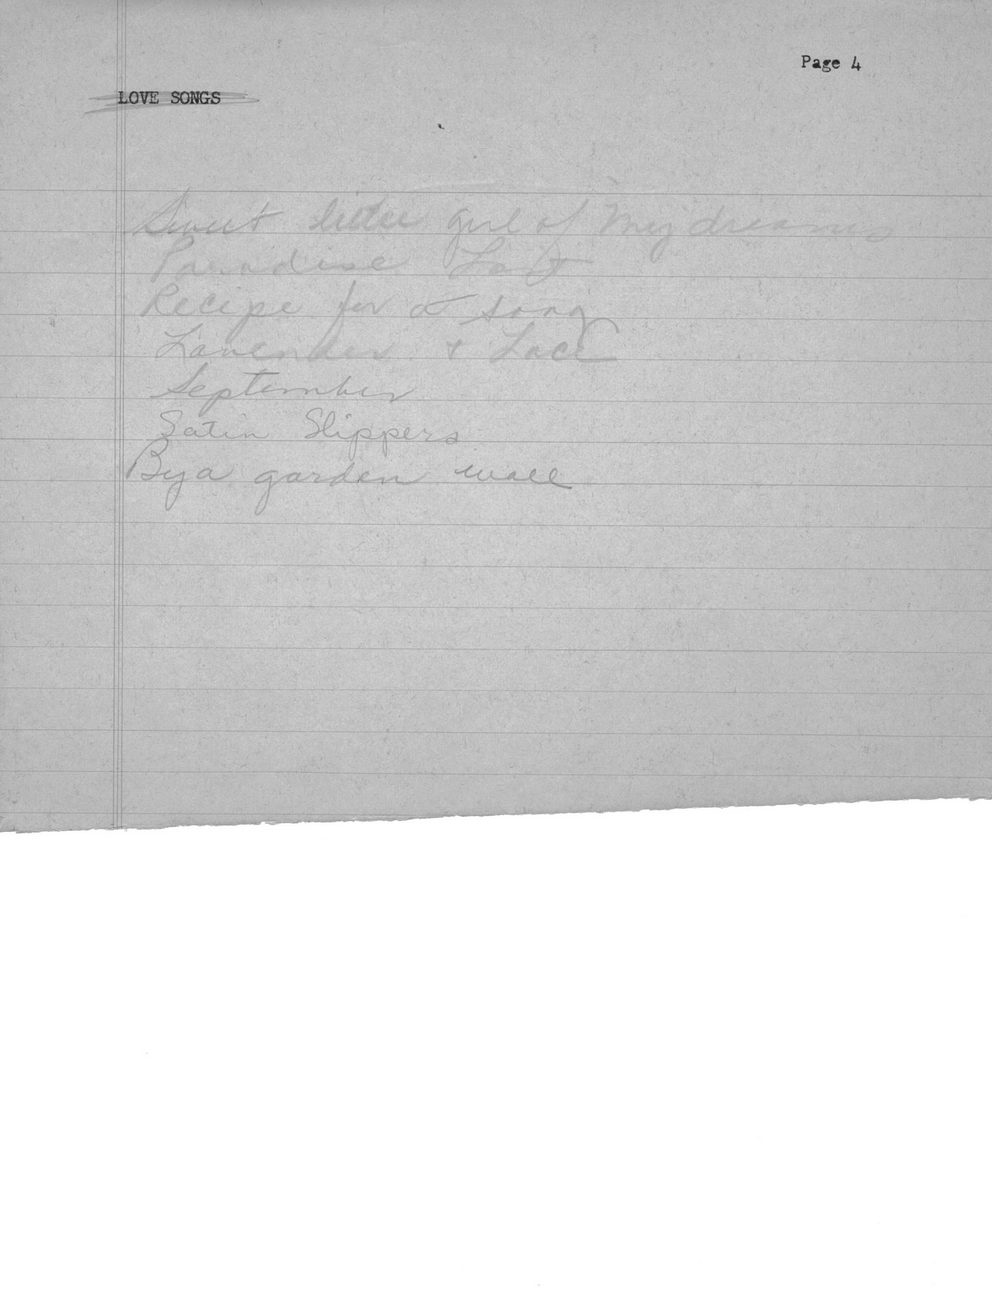 Page 4
LOVE SONGS
Sweet little girl of my dreams
Paradise Lost
Recipe for a song
Lavender + Lace
September
Satin Slippers
By a garden wall